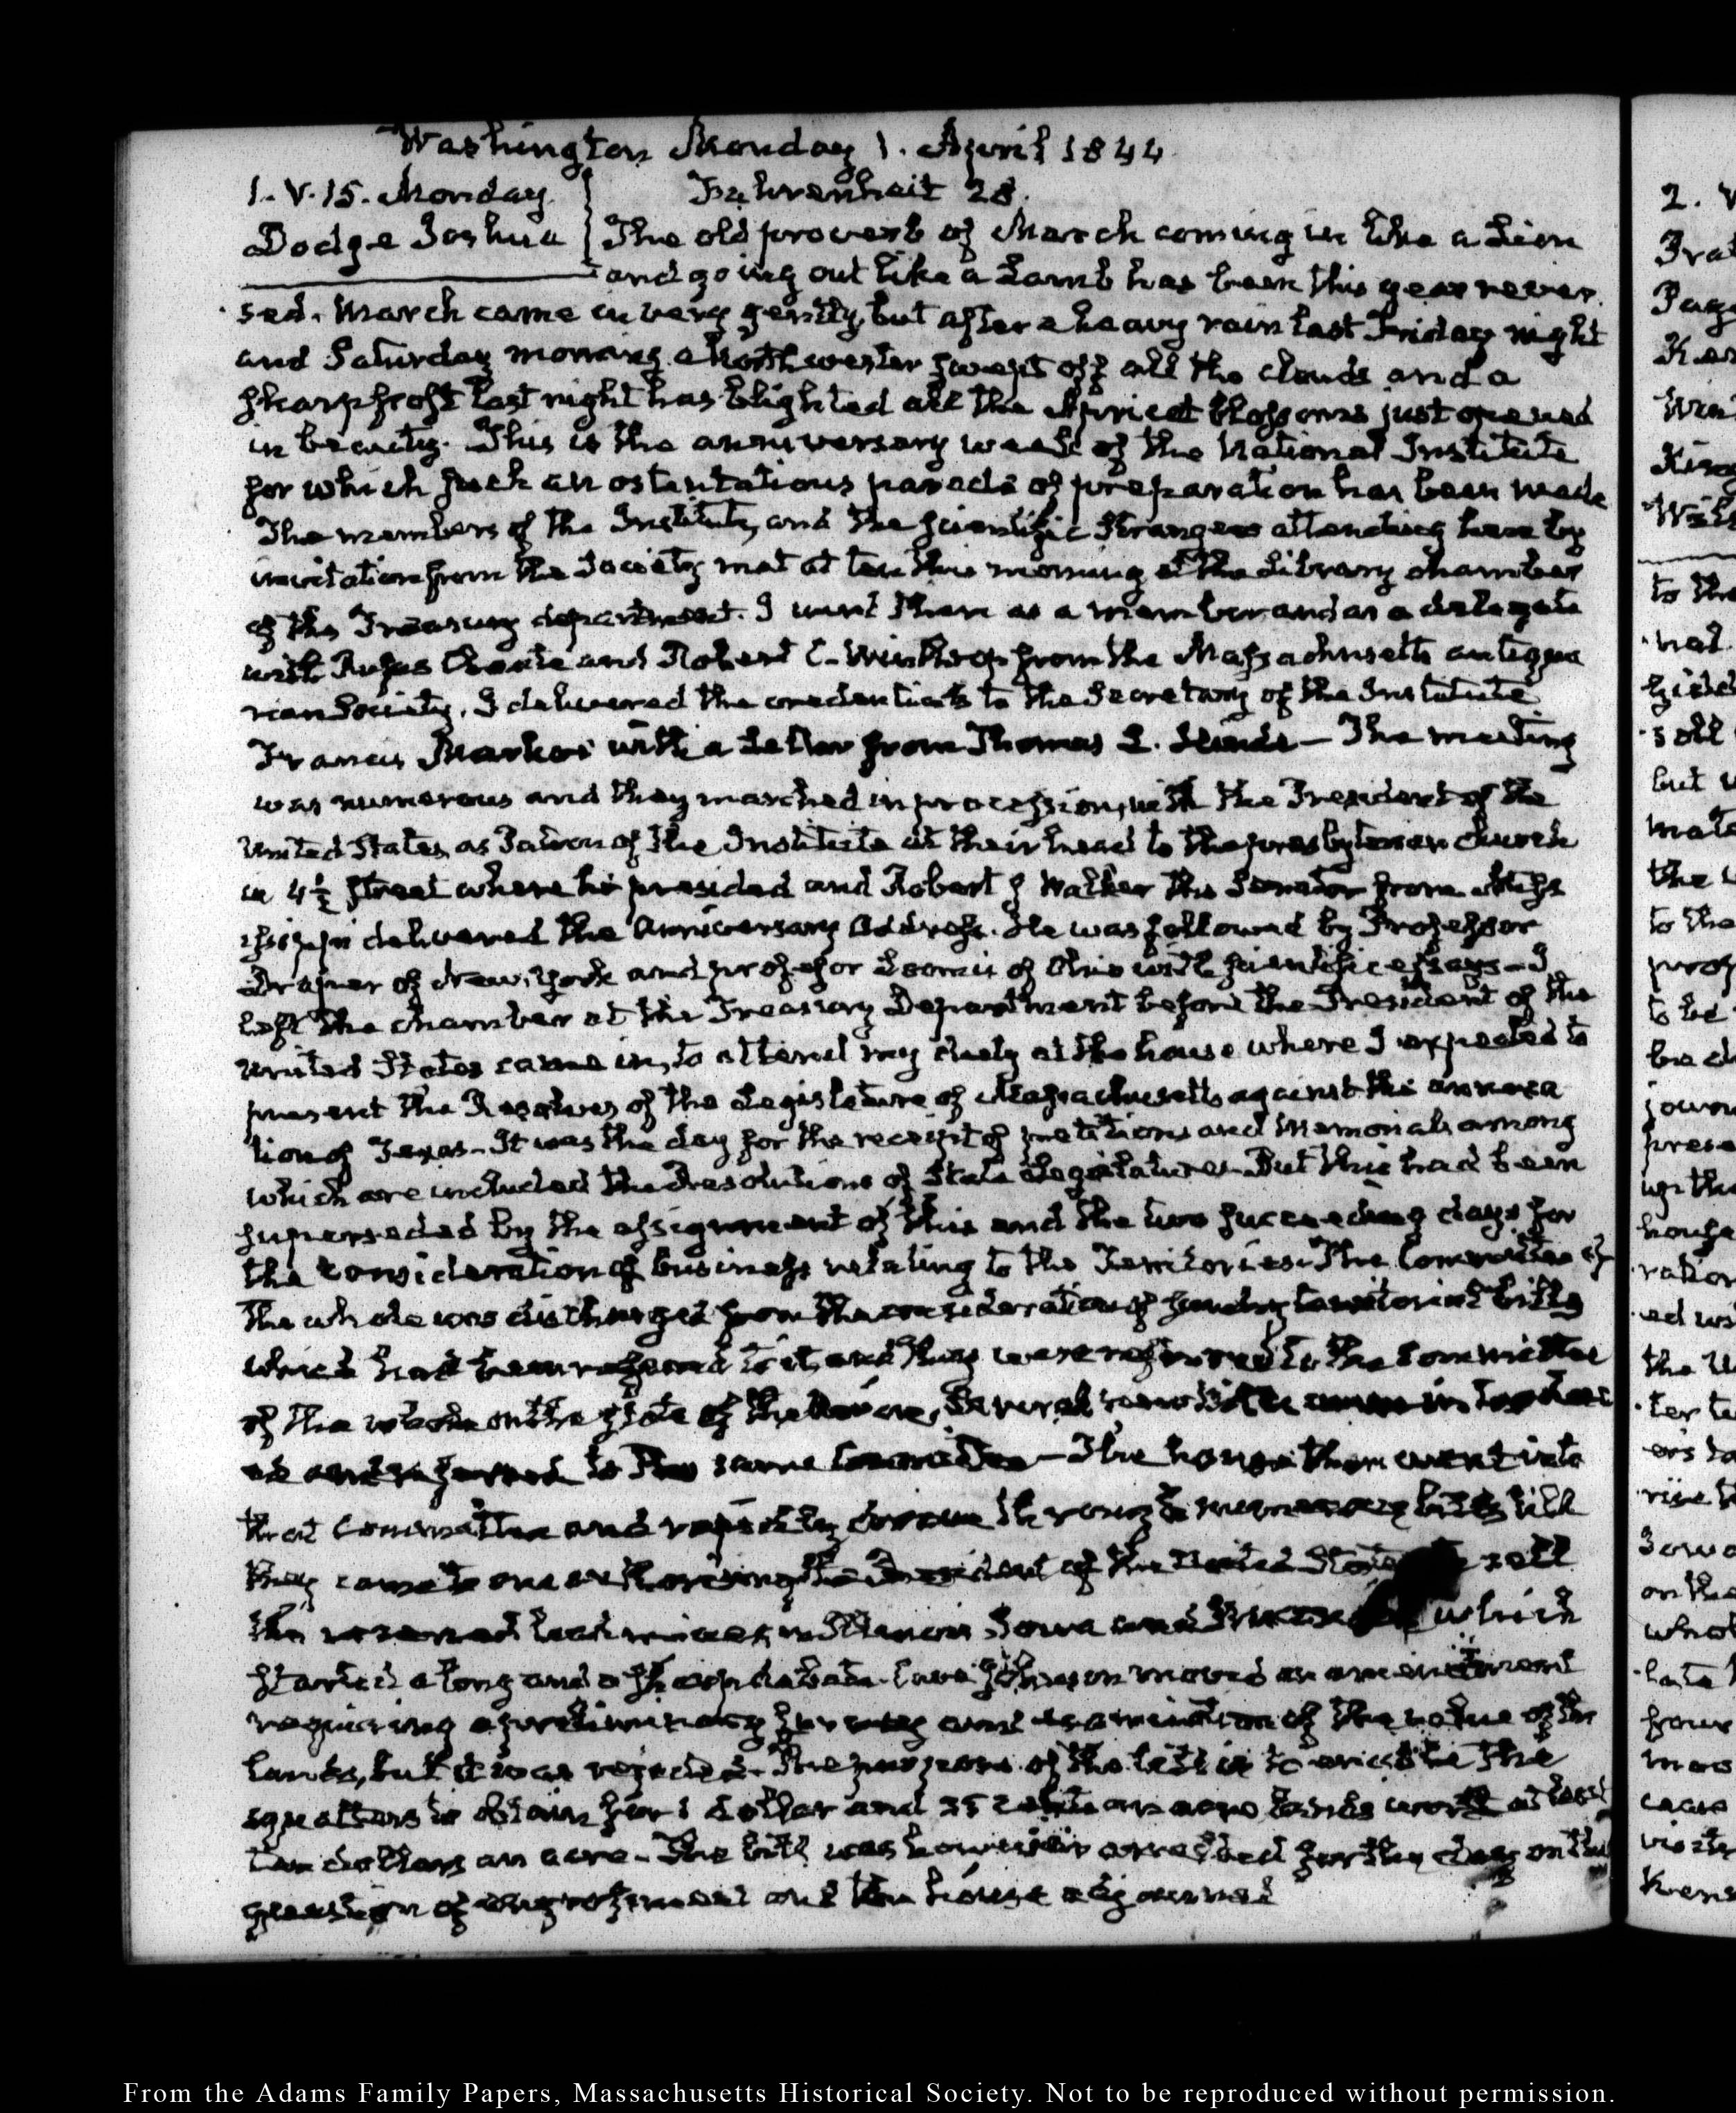 Washington Monday 1. April 1844
1. V.15. Monday
Fahrenheit 28.
Dodge Joshua
The old proverb of March coming in like a Lion
and going out like a Lamb has been this year rever-
sed. March came in very gently, but after a heavy rain last Friday night
and Saturday morning a Northwester swept off all the clouds and a
sharp frost last night has blighted all the Apricot blossoms just opened
in beauty. This is the anniversary week of the National Institute
for which such an ostentatious parade of preparation has been made
The members of the Institute, and the scientific strangers attending here by
invitation from the Society met at ten this morning at the Library chamber
of the Treasury department. I went there as a member and as a delegate
with Rufus Choate and Robert C. Winthrop from the Massachusetts antiqua
rian Society. I delivered the credentials to the Secretary of the Institute
Francis Markoe with a Letter from Thomas L. — The meeting
was numerous and they marched in procession, with the President of the
United States, as Patron of the Institute at their head to the presbyterian church
in 4½ street where he presided and Robert J Walker the Senator from Missi
ssippi delivered the Anniversary Address. He was followed by Professor
Draper of New-York and professor Loomis of Ohio with scientific essays — I
left the chamber at the Treasury Department before the President of the
United States came in, to attend my duty at the house where I expected to
present the Resolves of the Legislature of Massachusetts against the annexa
tion of Texas — It was the day for the receipt of petitions and memorials among
which are included the Resolutions of State Legislatures — But this had been
superseded by the assignment of this and the two succeeding days for
the consideration of business relating to the Territories. The Committee of
the whole was discharged from the consideration of sundry territorial bills
which had been referred to it, and they were referred to the Committee
of the whole on the state of the Union, Several
and referred to the same Committee — The house then went into
that Committee and rapidly through bills till
they came to one authorising the President of the United States sell
the reserved lead mines in Illinois, Iowa and which
started a long and sharp debate. Cave Johnson moved an amendment
requiring a preliminary survey and examination of the value of the
lands, but it was rejected. The purpose of the bill is to enable the
squatters to obtain for 1 dollar and 25 cents an acre lands worth at least
ten dollars an acre. The bill was however arrested for the day on the
question of engrossment and the house adjourned
2. V
to the
but
the
to the
to be
the
on the
From the Adams Family Papers, Massachusetts Historical Society. Not to be reproduced without permission.